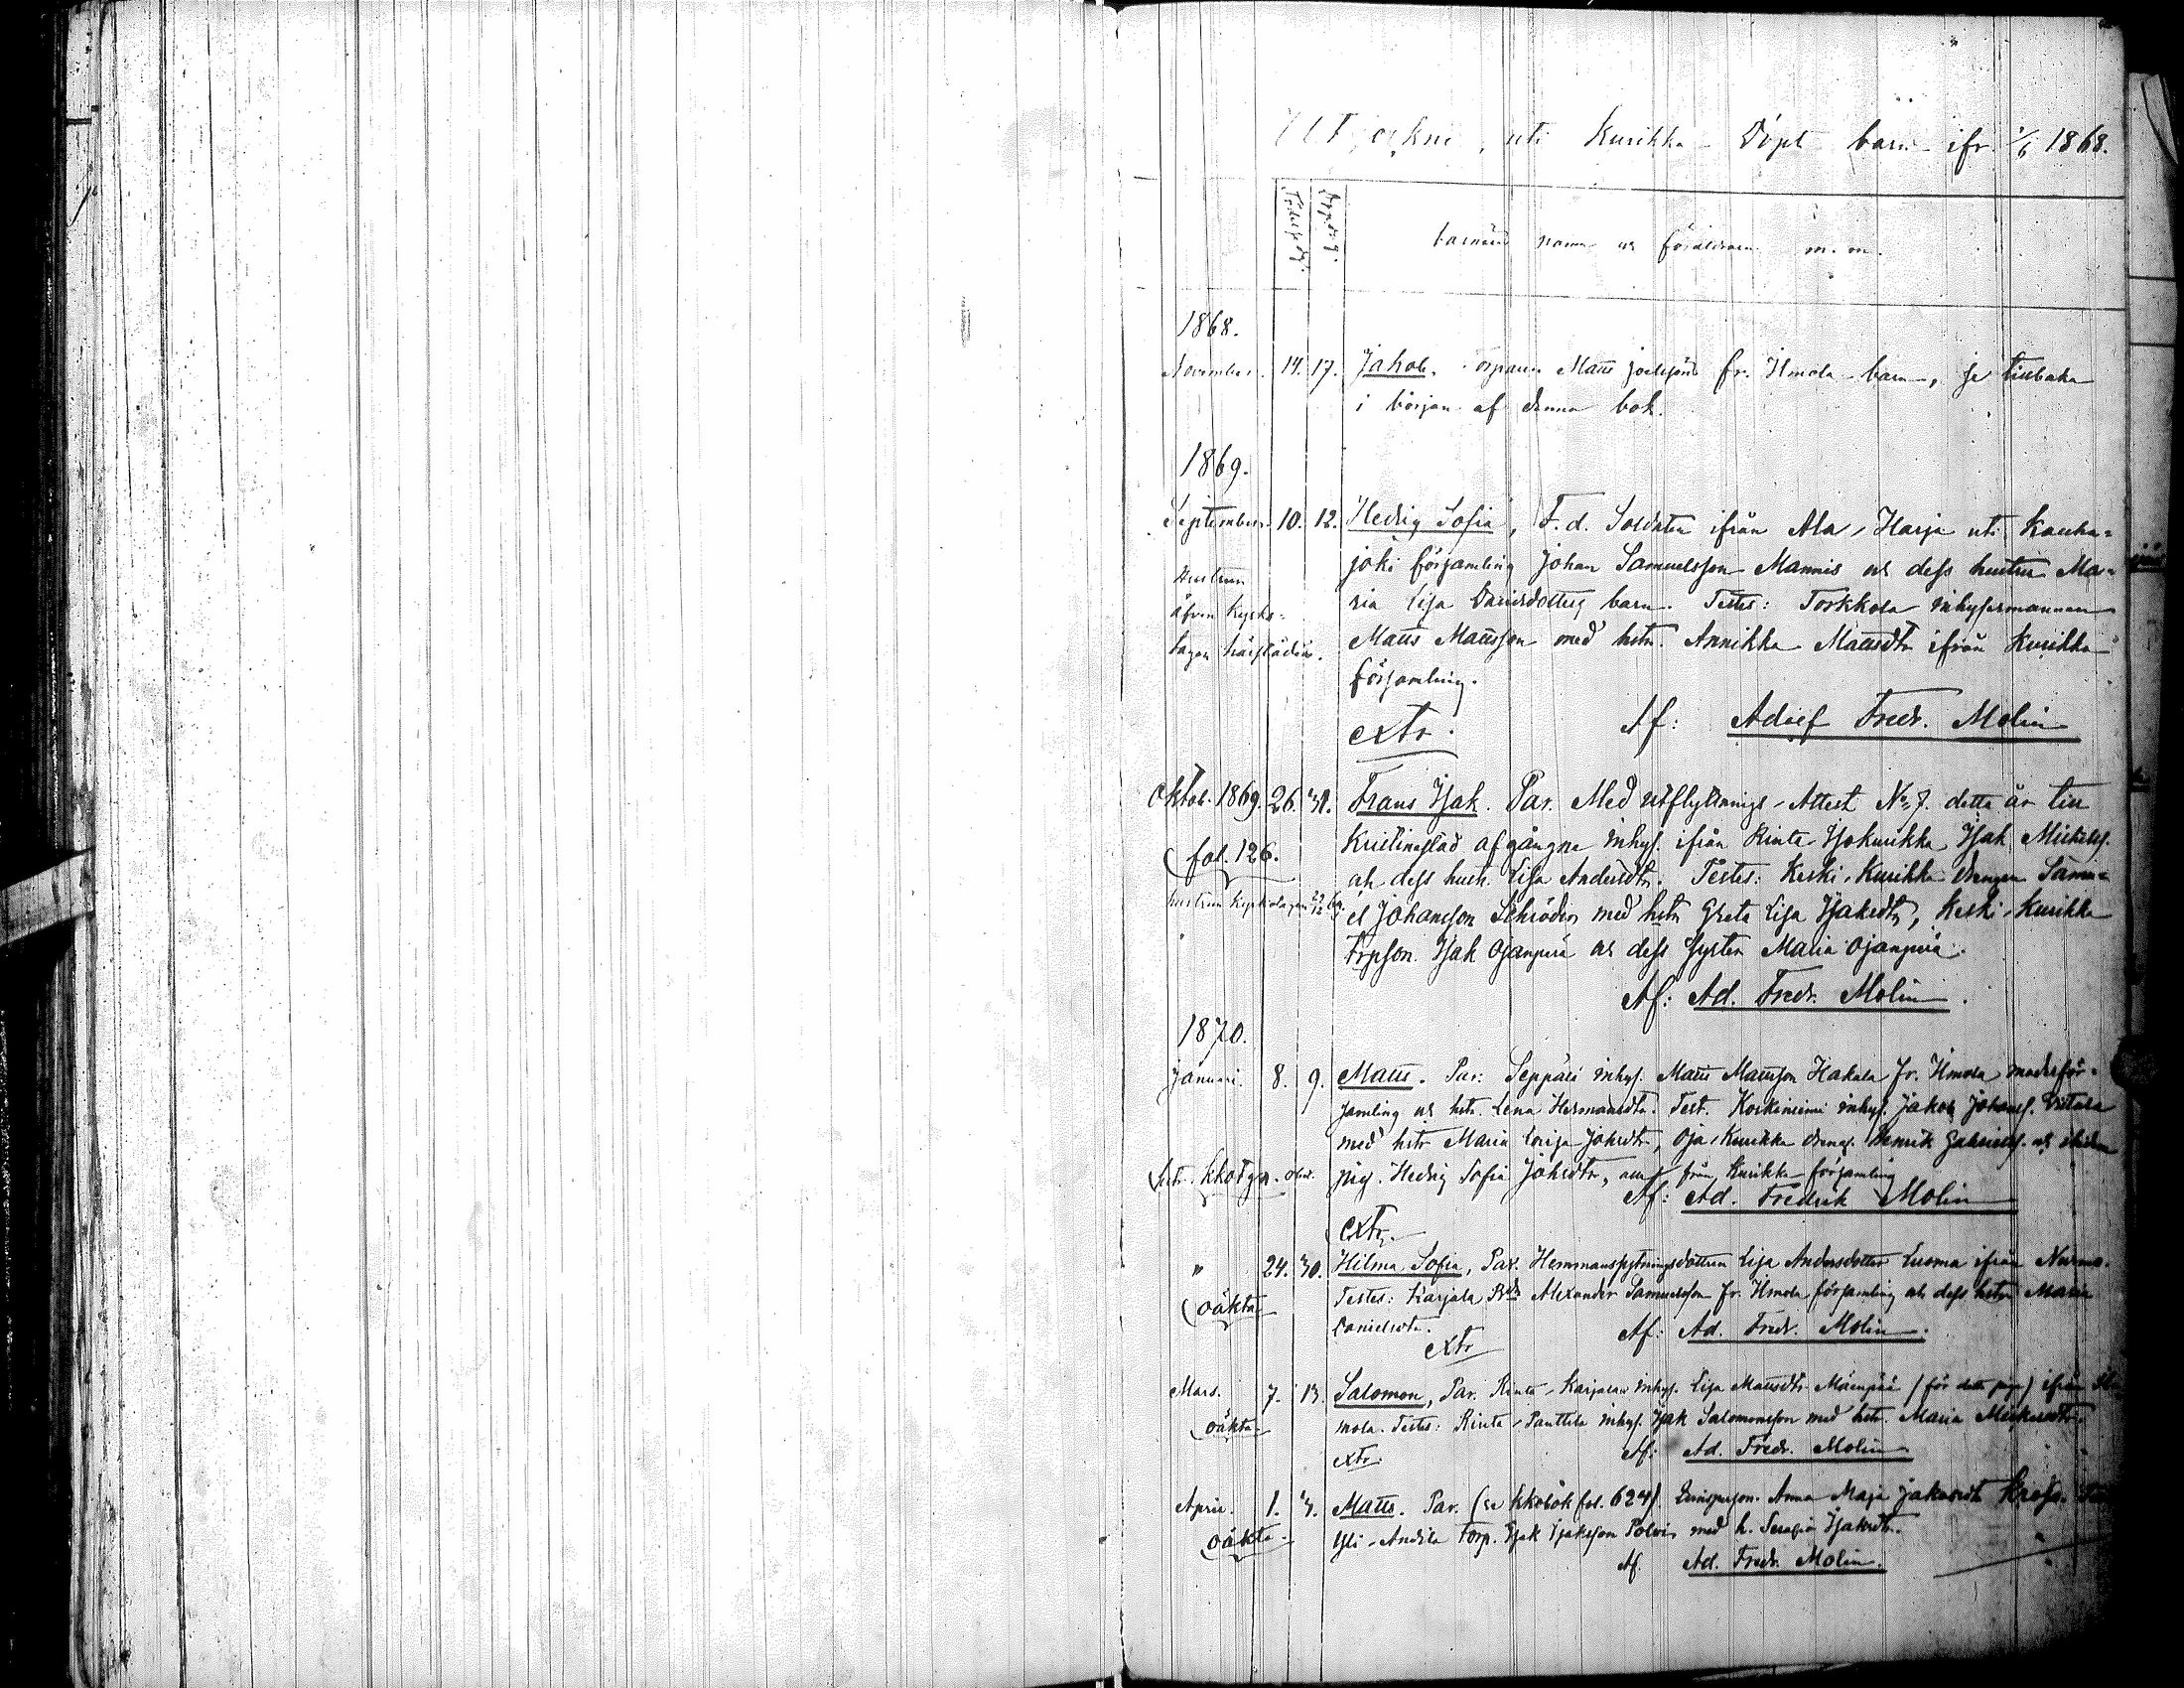 uti Kurikka Döpt barn ifr. 1/6 1868.
Födelsedag. Dopdag.
barnens namn och föräldrarne m.m.
1868.
November. 14. 17. Jakob. Matts fr. Ilmola barn, se tillbaka
i början af denna bok.
1869.
September. 10. 12. Hedvig Sofia, F.d. Soldaten ifrån Ala-Harja uti Kauha=
joki församling Johan Samuelsson Mannis och dess hustru Ma=
ria Lisa Davidsdotters barn. Testes: Torkkola inhysesmannen
Matts Mattsson med hstr. Annikka Mattsdtr ifrån Kurikka
församling.
Hustrun
äfven kyrko=
tagen härstädes.
extr. Af: Adolf Fredr. Molin
Oktob. 1869. 26. 31. Frans Isak. Par. Med utflyttnings-Attest No 7. detta år till
Kristinestad afgångne inhys. ifrån Rinta-Isokurikka Isak Mickelss.
och dess hust. Lisa Andersdtr. Testes: Keski-Kurikka drengen Samu=
el Johansson Schröder med hstr Greta Lisa Isaksdtr, Keski-Kurikka
trpson. Isak Ojanperä och dess syster Maria Ojanperä.
fol. 126.
hustrun kyrkotagen
Af: Ad. Fredr. Molin.
1870.
Januari. 8. 9. Matts. Par: Seppälä inhys. Matts Mattsson Hakala fr. Ilmola moderför=
samling och hstr. Lena Hermansdtr. Test. Koskiniemi inhys. Jakob Johanss.
med hstr Maria Lovisa Johsdtr, Oja-Kurikka dreng. Henrik Gabrielss. och
pig. Hedvig Sofia Johsdtr, från Kurikka församling
hstr. kkotgn.
Af: Ad. Fredrik Molin
extr.
" 24. 30. Hilma Sofia, Par. Hemmansbrukaredottren Lisa Andersdotter Luoma ifrån Nurmo.
oäkta Testes: Karjala Alexander Samuelsson fr. Ilmola församling och dess hstr Maria
Danielsdtr. Af: Ad. Fredr. Molin.
extr
Mars. 7. 13. Salomon, Par. Rinta-Karjalan inhys. Lisa Mattsdtr Mäenpää ifrån Il=
oäkta mola. Testes: Rinta-Panttila inhys. Isak Salomonsson med hstr. Maria
extr. Af: Ad. Fredr. Molin
April. 1. 3. Matts. Par. (se kkobok fol. 624) Anna Maja Jakobsdtr
oäkta Yli-Andila Torp. Isak Isaksson Polvi med h. Serafia Isaksdtr.
Af. Ad. Fredr. Molin.